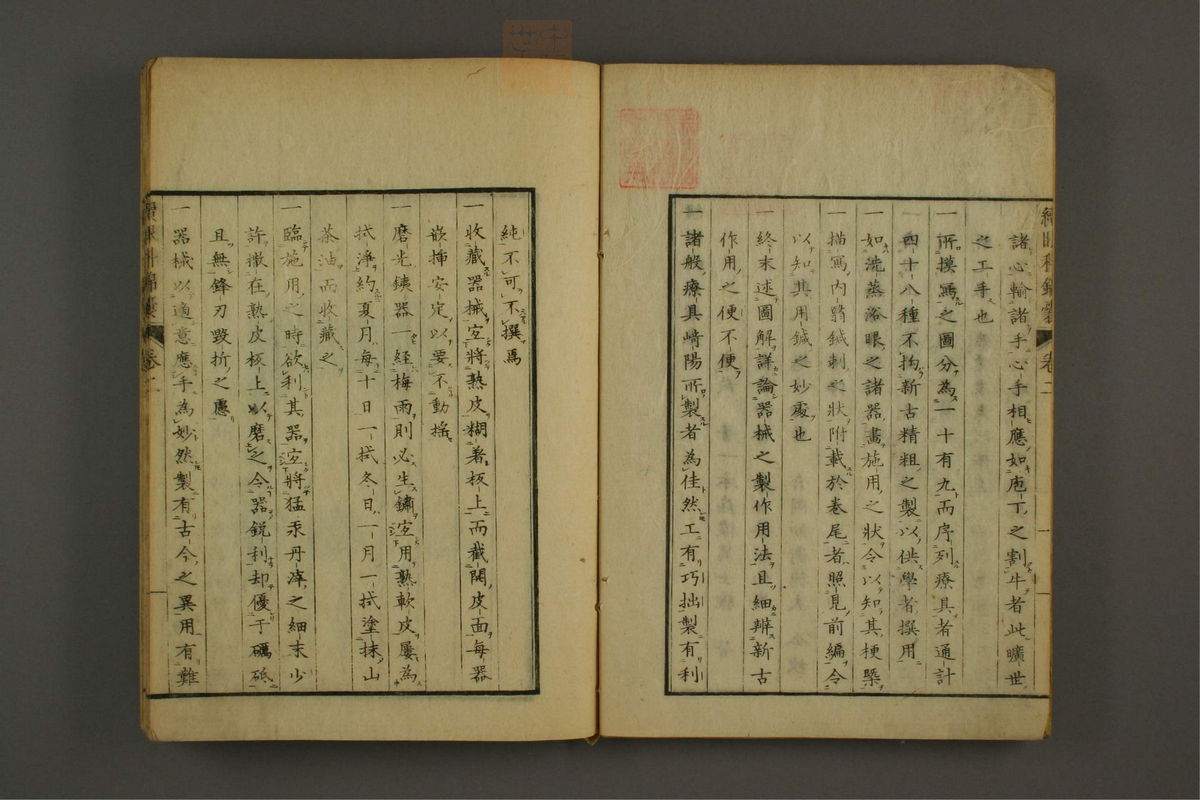 續眼科錦囊 卷二 一
諸心輸諸手心手相應如庖丁之割牛者此曠世
之工手也
一所摸寫之圖分為一十有九而序列療具者通計
四十八種不拘新古精粗之製以供學者撰用
一如洗蒸浴眼之諸器畫施用之狀令以知其梗槩
一描寫內翳鍼刺之狀附載於卷尾者照見前編令
以知其用鍼之妙處也
一終末述圖解詳論器械之製作用法且細辨新古
作用之便不便
一諸般療具﨑陽所製者為佳然工有巧拙製有利
純不可不撰焉
一收藏器械宜將熟皮糊著板上而截開皮面每器
嵌挿安定以要不動搖
一磨光銕器一經梅雨則必生鏽宜用熟軟皮屢為
拭淨約夏月每十日一拭冬日一月一拭塗抹山
茶油而收藏之
一臨施用之時欲利其器宜將猛汞丹滓之細末少
許撒在熟皮板上以磨之令器銳利却優于礪砥
且無鋒刃毀折之慮
一器械以適意應手為妙然製有古今之異用有難
續眼科錦囊 卷二